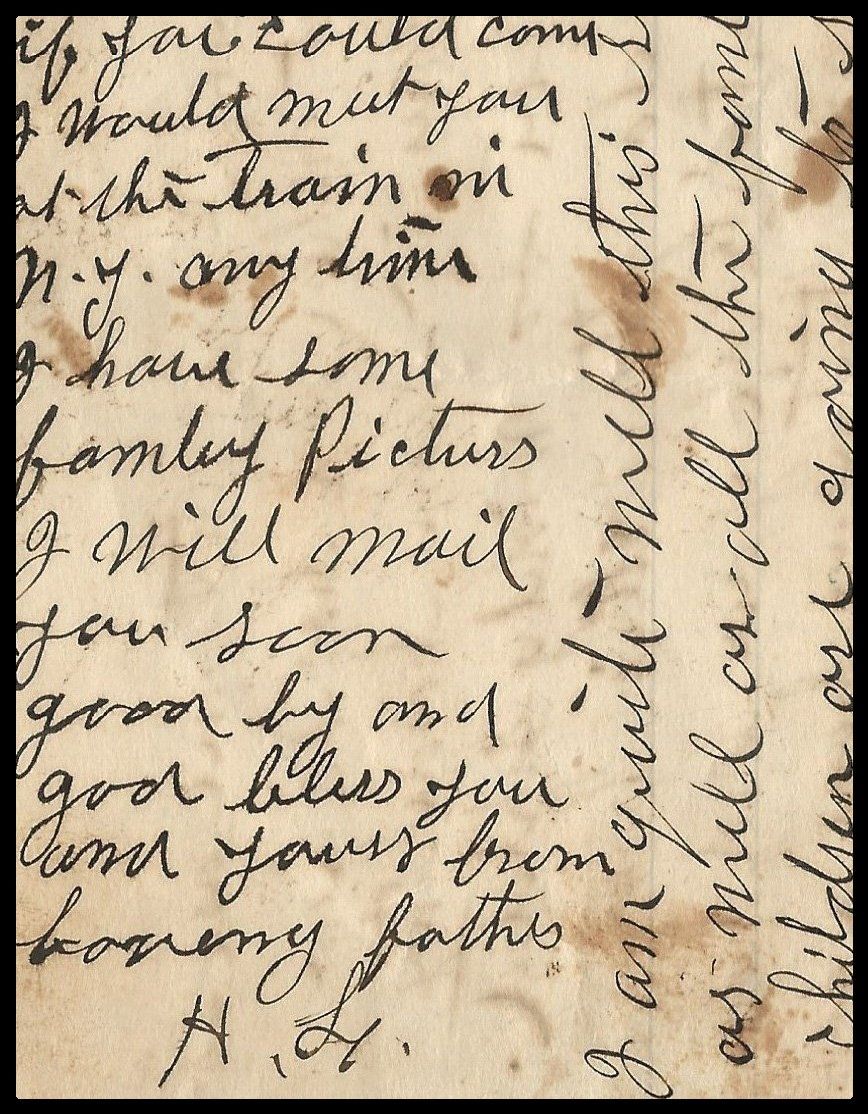 if you could come
I would met you
at the train in
N.Y. any time
I have some
famley Picturs
I will mail
you soon
good by and
god bless you
and yours from
father
H. L.
I am quite well this
as well as all the fam
children are going to s